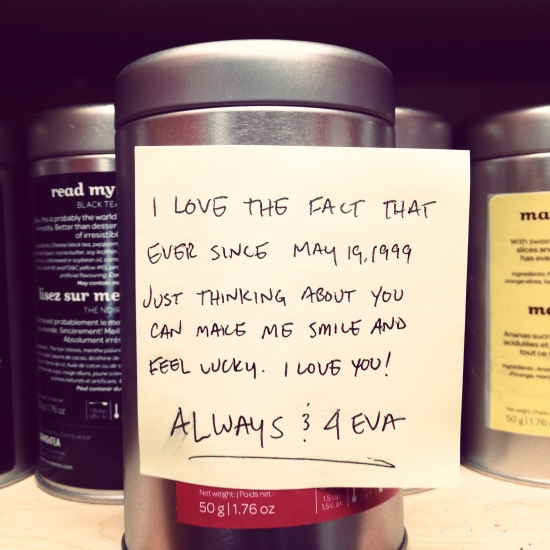 I LOVE THE FACT THAT
EVER SINCE MAY 19, 1999
JUST THINKING ABOUT YOU
CAN MAKE ME SMILE AND
FEEL LUCKY. I LOVE YOU!
ALWAYS & 4 EVA
read my
BLACK TEA
this is probably the world
honestly. Better than desser
of irresistibl
lisez sur me
THÉ NOIR
est probablement le me
du monde. Sincèrement! Me
Absolument irrés
DAVIDsTEA
Net weight: | Poids net:
50 g | 1.76 oz
ma
With swee
slices and
has eve
me
Ananas sucr
acidulées et
tout ce
50 g | 1.76